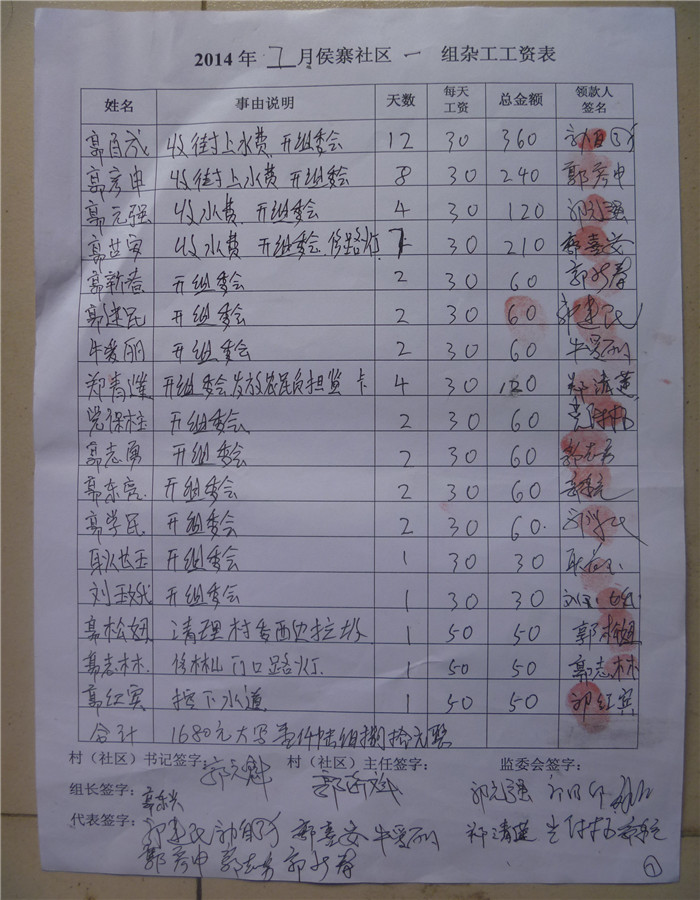 2014年 7 月侯寨社区 一 组杂工工资表
姓名 事由说明 天数 每天工资 总金额 领款人签名
郭自成 收街上水费 开组委会 12 30 360
郭彦申 收街上水费 开组委会 8 30 240 郭彦申
郭元强 收水费 开组委会 4 30 120 郭元强
郭喜安 收水费 开组委会 修路灯 7 30 210 郭喜安
郭新春 开组委会 2 30 60 郭新春
郭建民 开组委会 2 30 60 郭建民
牛爱丽 开组委会 2 30 60 牛爱丽
郑青莲 开组委会发放农民负担监 卡 4 30 120 郑清莲
党保柱 开组委会 2 30 60
郭志勇 开组委会 2 30 60 郭志勇
郭东亮 开组委会 2 30 60
郭学民 开组委会 2 30 60. 郭学民
耿世玉 开组委会 1 30 30
刘玉娥 开组委会 1 30 30 刘玉娥
郭松妞 清理村委西边垃圾 1 50 50 郭松妞
郭志林. 修林山门口路灯. 1 50 50 郭志林
郭红宾 挖下水道 1 50 50 郭红宾
合计 1680元大写壹仟陆佰捌拾元整
村（社区）书记签字： 村（社区）主任签字： 监委会签字：
组长签字： 郭元强
代表签字： 郭建民 郭喜安 牛爱丽 郑清莲
郭彦申 郭志勇 郭新春
1